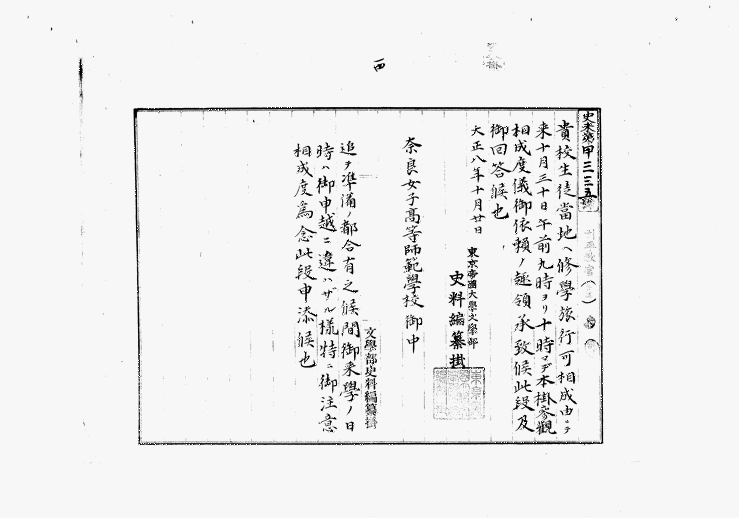 四
史來第甲三三五號
貴校生徒當地ヘ修學旅行可相成由ニテ
來十月三十日午前九時ヨリ十時マデ本掛參觀
相成度儀御依賴ノ趣領承致候此段及
御回答候也
大正八年十月廿日
東京帝國大學文學部
史料編纂掛
奈良女子高等師範學校 御中
文學部史料編纂掛
追テ準備ノ都合有之候間御來學ノ日
時ハ御申越ニ違ハザル樣特ニ御注意
相成度爲念此段申添候也